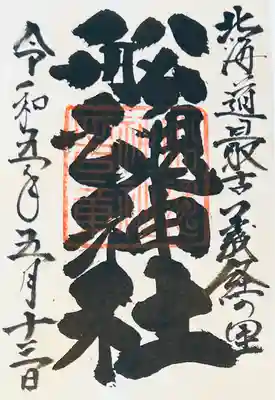 北海道最古義経の里
舩魂神社
令和五年五月十三日